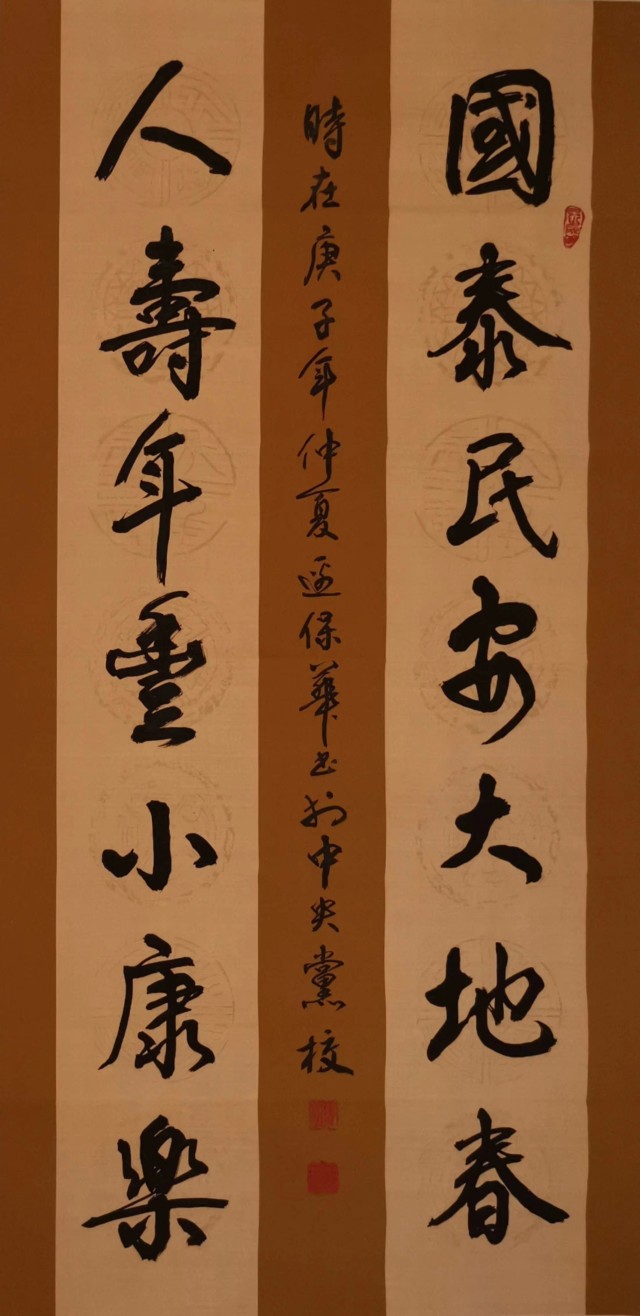 國泰民安大地春
人壽年豐小康樂
時在庚子年仲夏 保華書於中央黨校